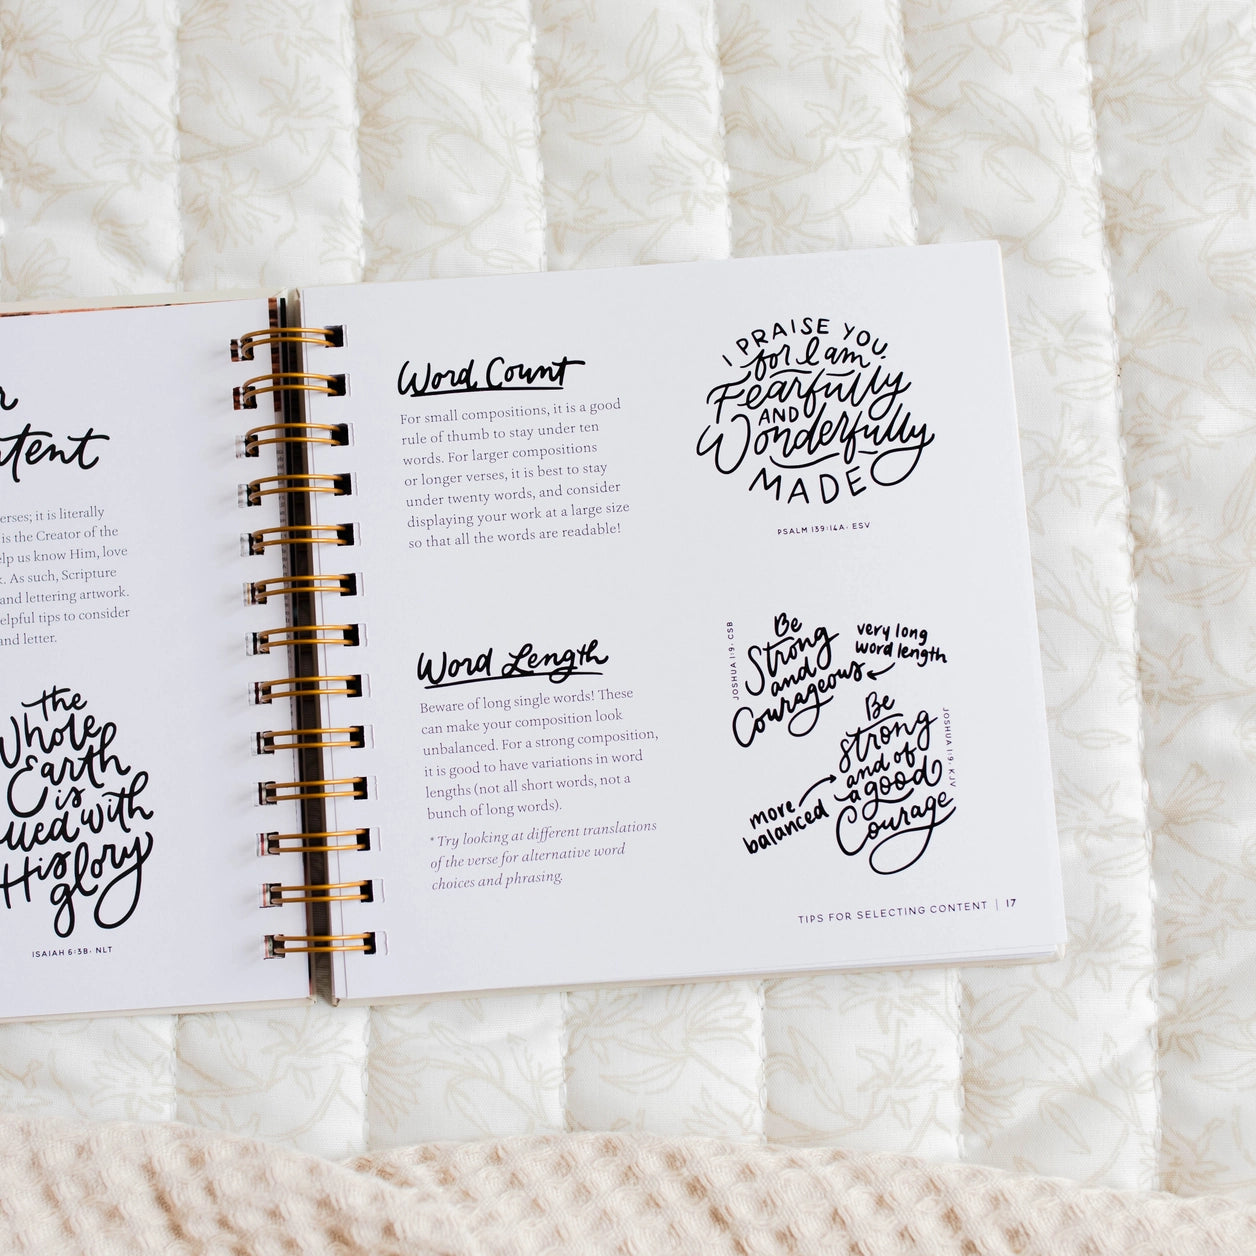 erses; it is literally
is the Creator of the
elp us know Him, love
As such, Scripture
and lettering artwork.
elpful tips to consider
and letter.
the
Whole
Earth
is
with
His
glory
ISAIAH 6:3B, NLT
Word Count
For small compositions, it is a good
rule of thumb to stay under ten
words. For larger compositions
or longer verses, it is best to stay
under twenty words, and consider
displaying your work at a large size
so that all the words are readable!
Word Length
Beware of long single words! These
can make your composition look
unbalanced. For a strong composition,
it is good to have variations in word
lengths (not all short words, not a
bunch of long words).
* Try looking at different translations
of the verse for alternative word
choices and phrasing.
I PRAISE YOU,
for I am
Fearfully
AND
Wonderfully
MADE
PSALM 139:14A, ESV
JOSHUA 1:9, CSB
Be
Strong
and
Courageous
very long
word length
Be
strong
and of
a good
Courage
JOSHUA 1:9, KJV
more
balanced
TIPS FOR SELECTING CONTENT | 17